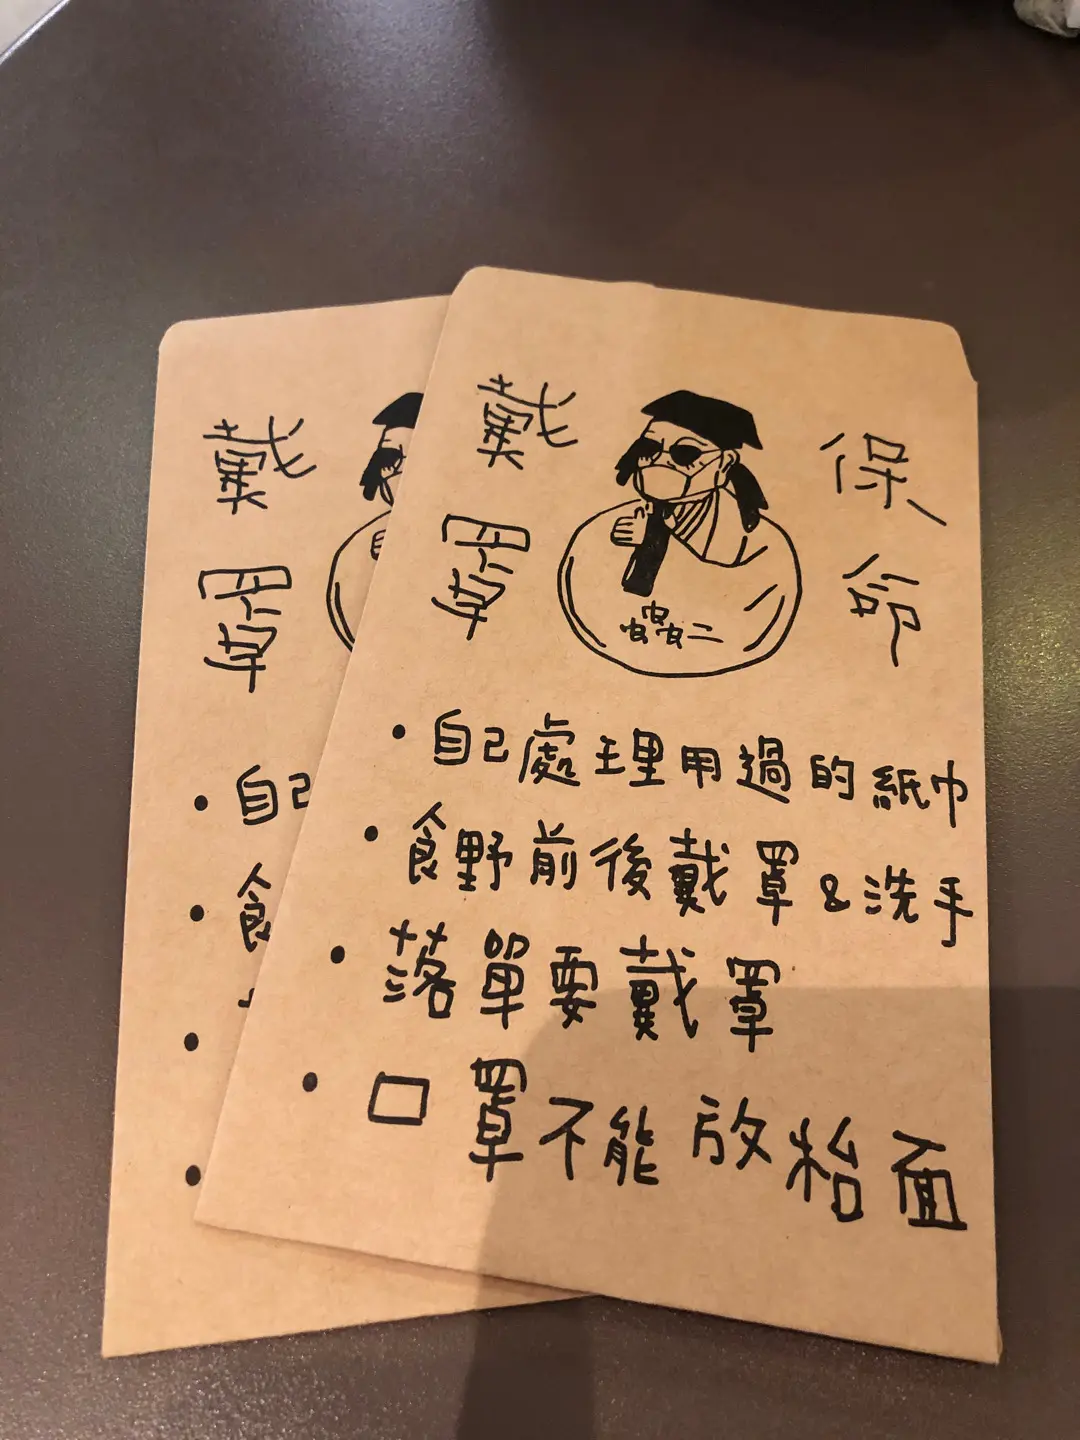 戴罩
保命
蟲二
• 自己處理用過的紙巾
• 食野前後戴罩&洗手
• 落單要戴罩
• 口罩不能放枱面
戴罩
• 自己
• 食
•
•